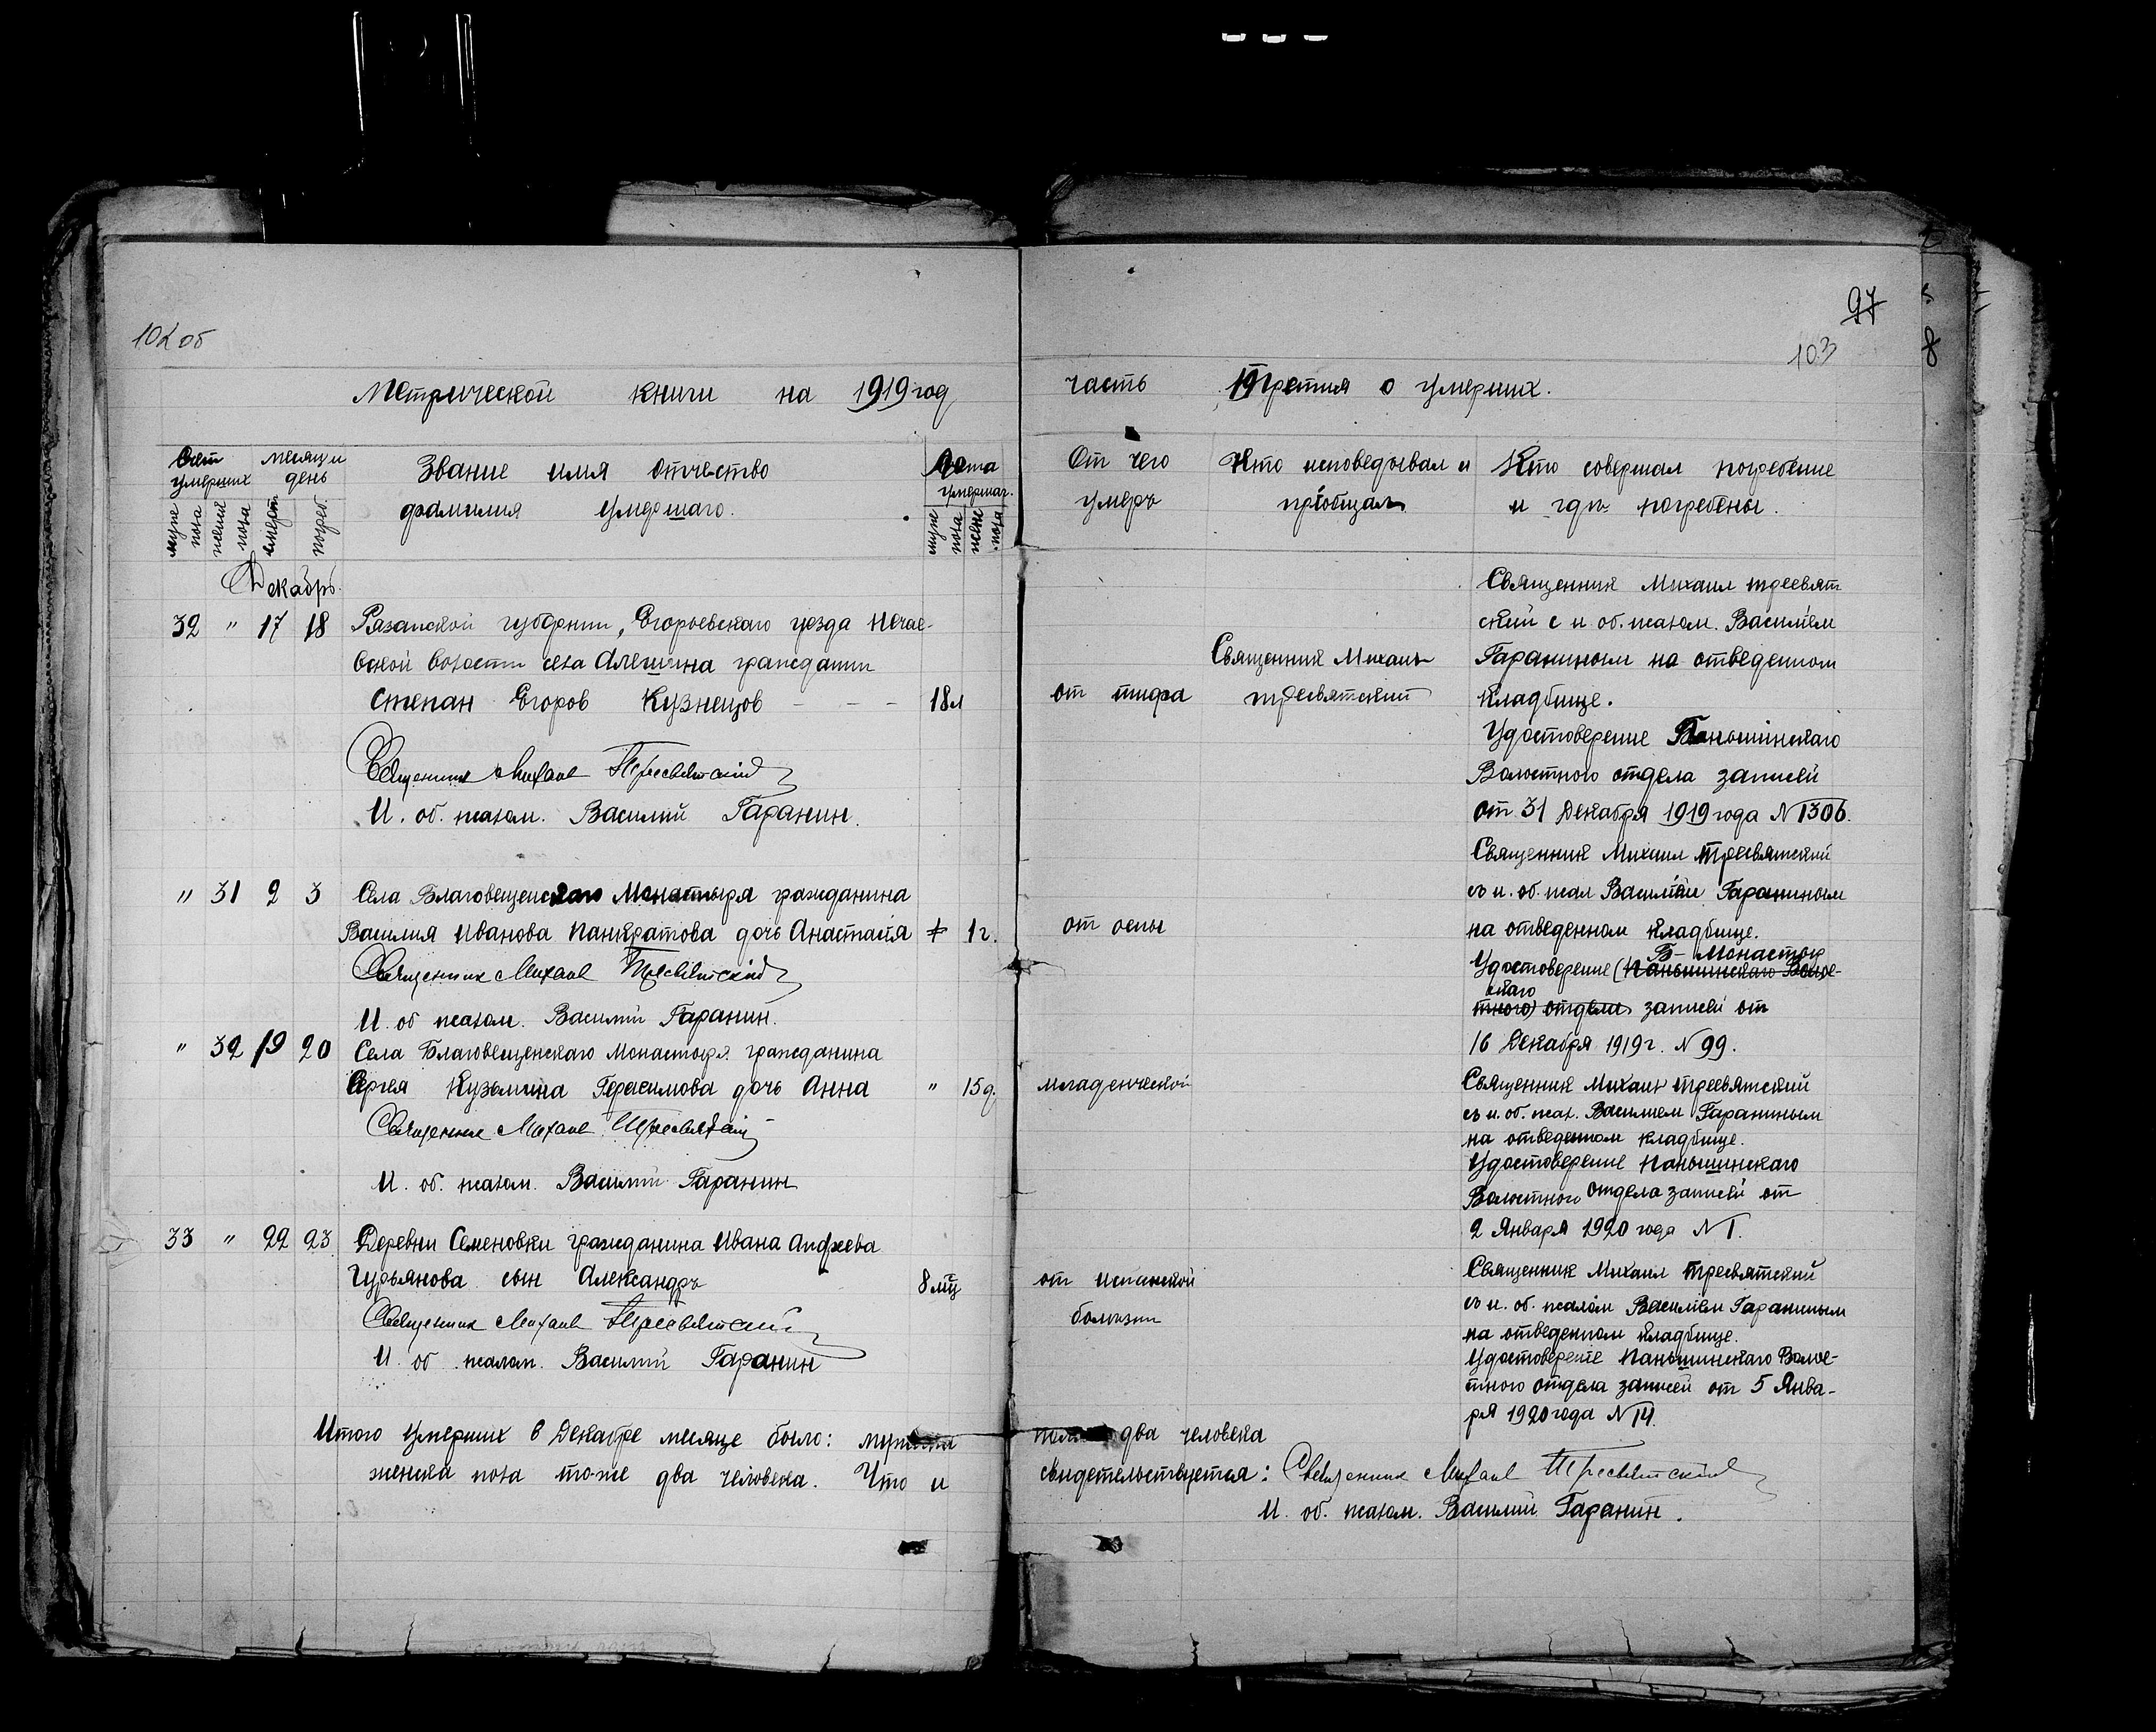 102 об
Метрической книги на 1919 год
Счет умерших
месяц и день
Звание имя отчество
фамилия умершаго.
Лета
умершаг.
муже
пола
женск
пола
смерт
погреб.
муже
пола
женс
пола
Декабрь.
32 " 17 18 Рязанской губернии, Егорьевскаго уезда Нечае-
вской волости села Алешина гражданин
Степан Егоров Кузнецов - - - 18 л
Священник Михаил Пресвятский
И. об. псалом. Василий Гаранин.
" 31 2 3 Села Благовещенскаго Монастыря гражданина
Василия Иванова Панкратова дочь Анастасія 1 г.
Священник Михаил Пресвятскій
И. об псалом. Василий Гаранин.
" 32 19 20 Села Благовещенскаго Монастыря гражданина
Сергея Кузьмина Герасимова дочь Анна " 15 д.
Священник Михаил Пресвятский
И. об. псалом. Василий Гаранин
33 " 22 23 Деревни Семеновки гражданина Ивана Андреева
Гурьянова сын Александръ 8 мц
Священник Михаил Пресвятский
И. об. псалом. Василий Гаранин
Итого умерших в Декабре месяце было:
женска пола тоже два человека. Что и
97
103
часть третия о умерших.
От чего
умеръ
Кто исповедывал и
пріобщалъ
Кто совершал погребение
и гдѣ погребены.
от тифа
Священник Михаил
Священник Михаил
с и. об. псалом. Василіем
Гараниным на отведенном
кладбище.
Удостоверение Паньшинскаго
Волостного отдела записей
от 31 Декабря 1919 года N 1306.
от оспы
Священник Михаил
съ и. об. псал Василіем Гараниным
на отведенном кладбище.
Б- Монастыр
Удостоверение (Паньшинскаго Волос-
скаго
тного) отдела записей от
16 Декабря 1919 г. N 99.
младенческой
Священник Михаил
съ и. об. псал. Василием Гараниным
на отведенном кладбище.
Удостоверение Паньшинскаго
Волостного отдела записей от
2 Января 1920 года N 1.
от испанской
болезни
Священник Михаил
съ и. об. псалом Василіем Гараниным
на отведенном кладбище.
Удостоверение Паньшинскаго Волос-
тного отдела записей от 5 Янва-
ря 1920 года N 14.
два человека
свидетельствуется: Священник Михаил Пресвятский
И. об. псалом. Василий Гаранин.